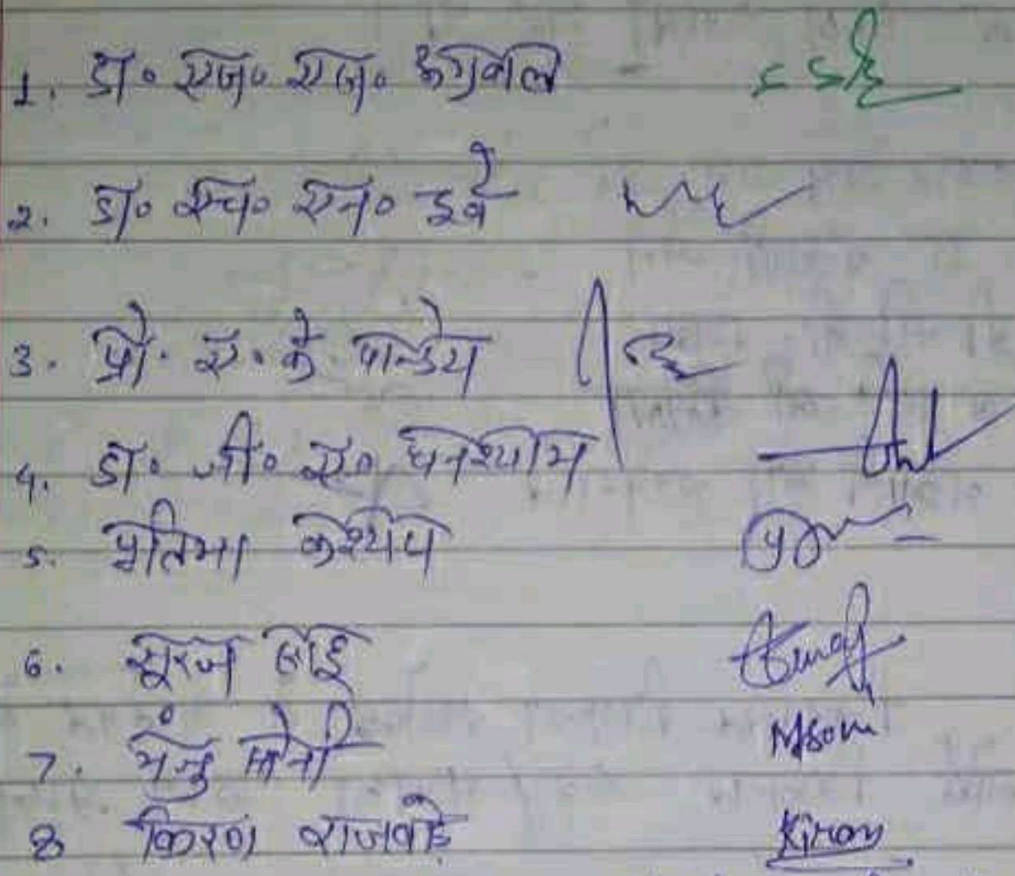 1. डा० एस० एस० अग्रवाल -
2. डा० एच० एन० दुबे
3. प्रो. ए. के. पान्डेय
4. डा० जी० ए० घनश्याम
5. प्रतिमा कश्यप
6. सूरज
7. मंजु सोनी Msoni
8 किरण राजवाड़े Kiran